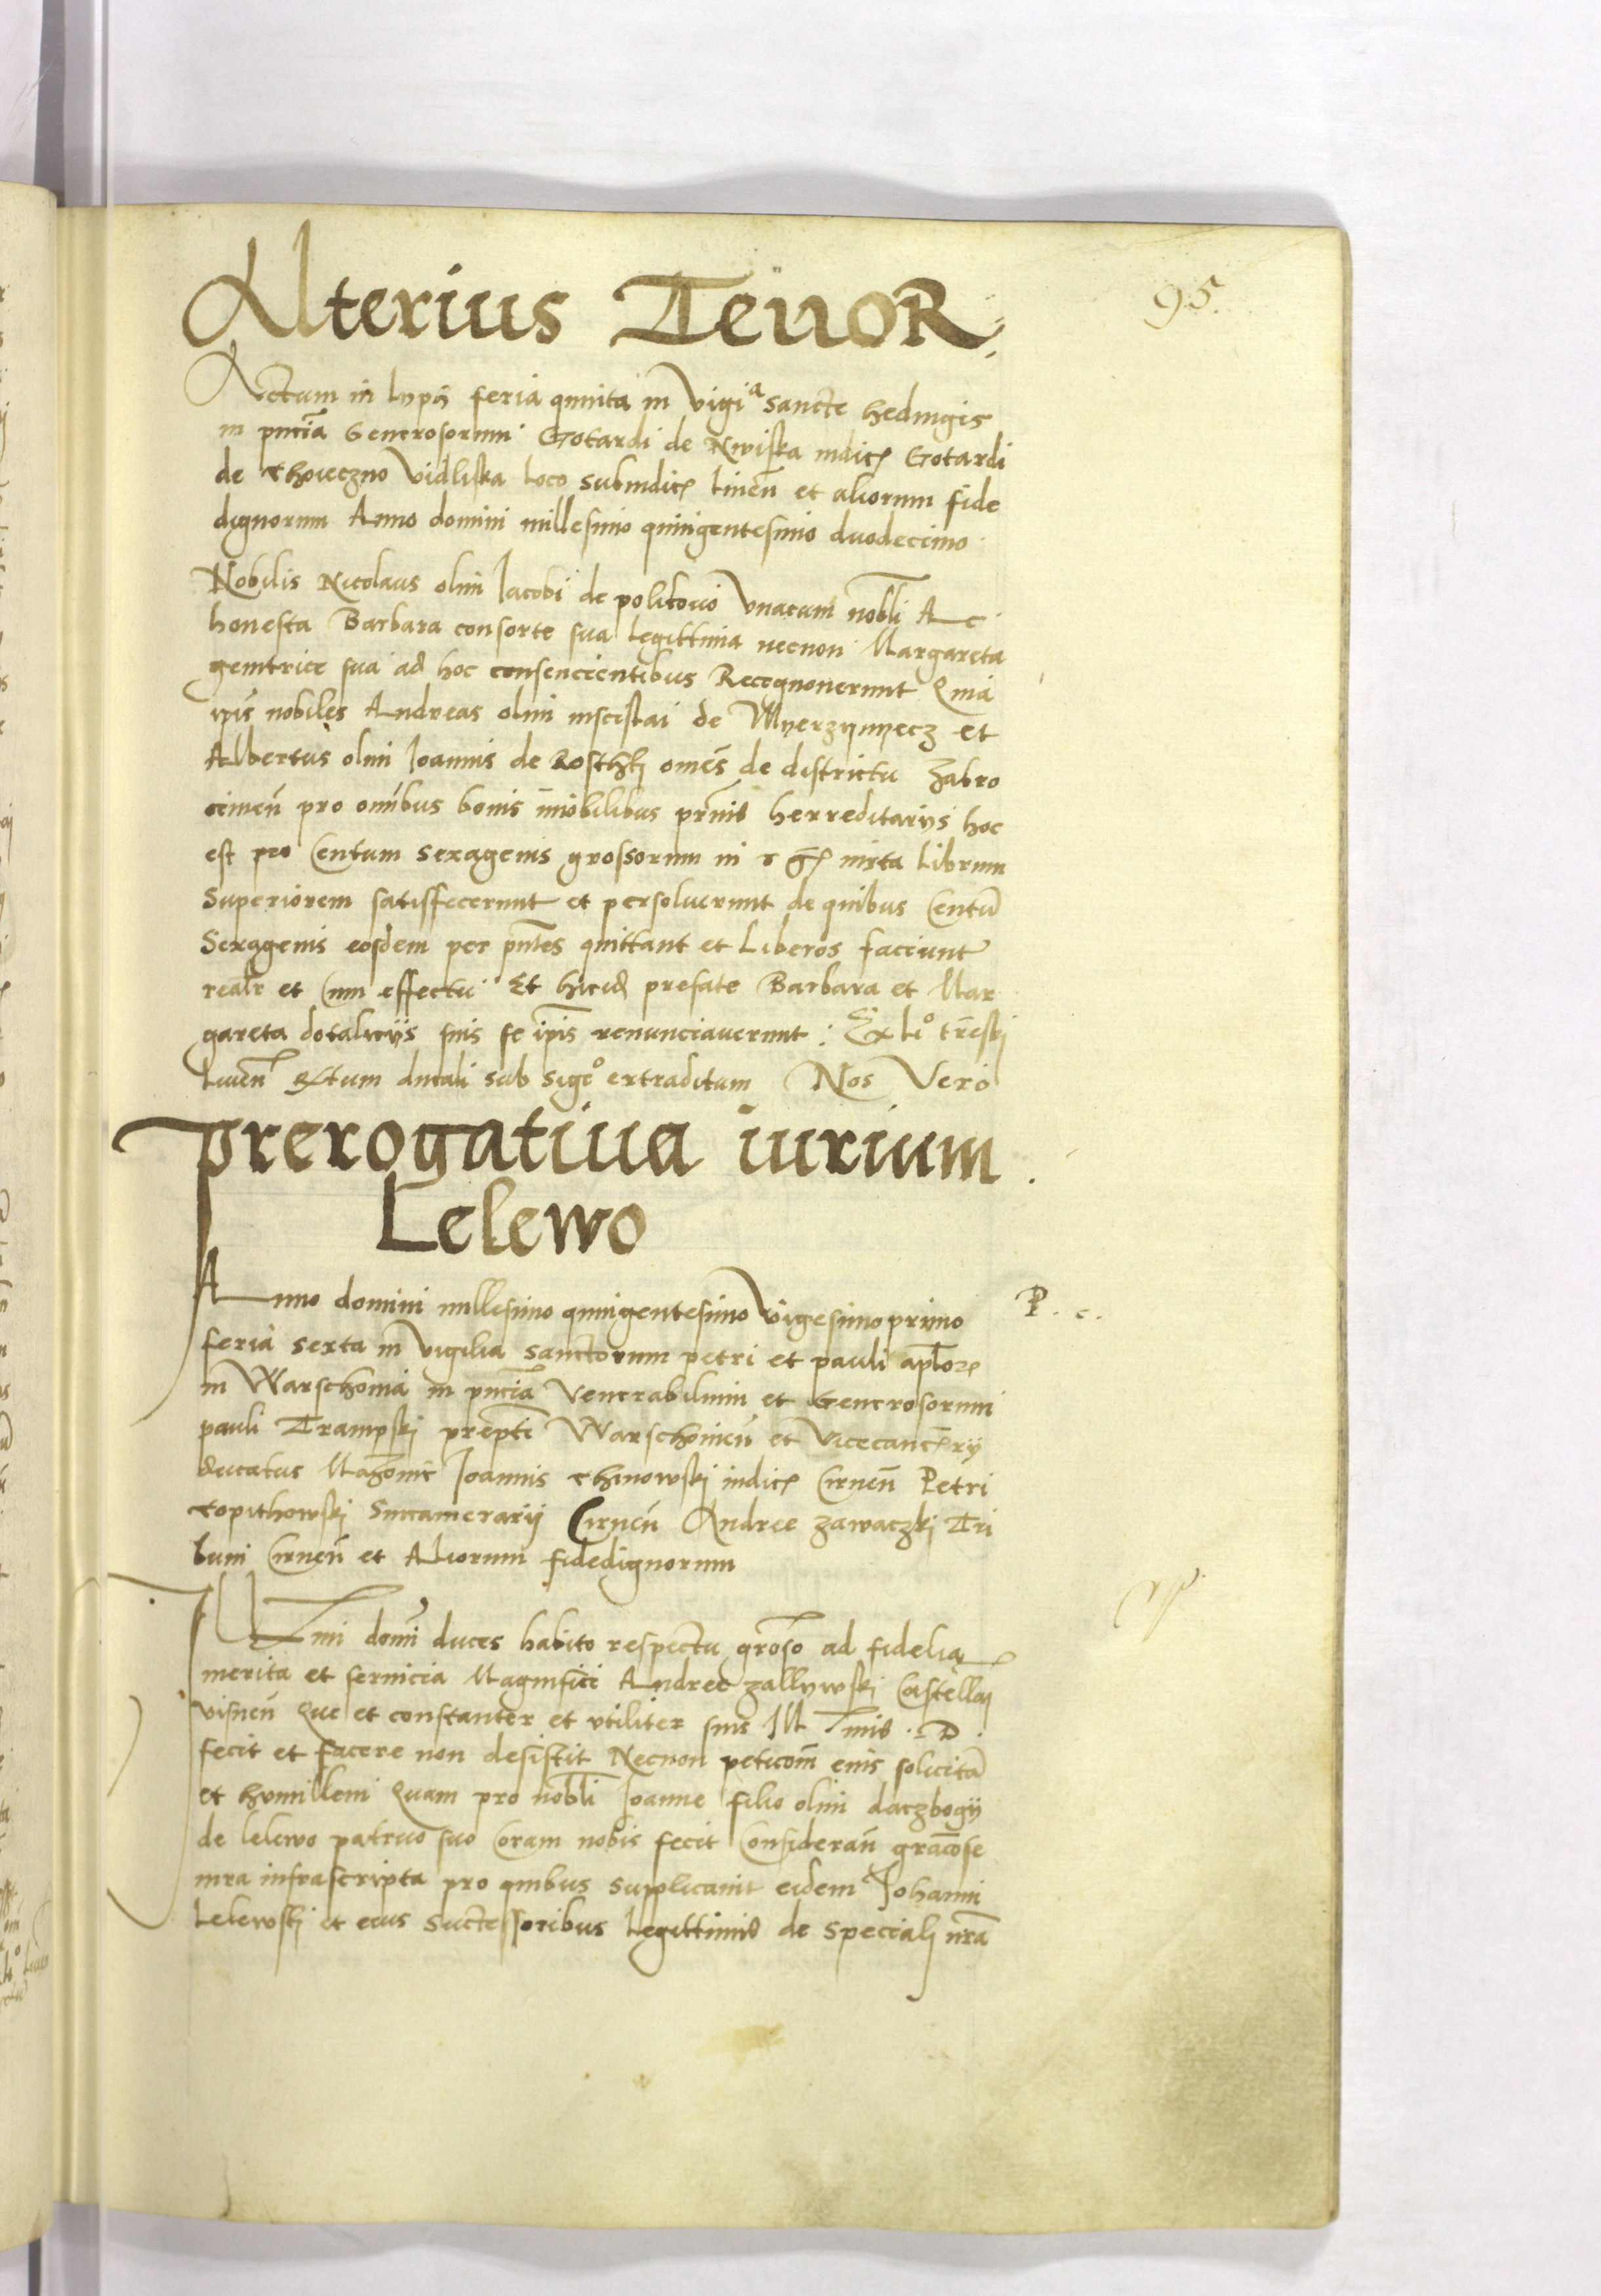 95.
Alterius Tenor
Actum in lypȳ feria quinta in Vigiᵃ sancte heduigis
in pn̄cia Generosorum Gotardi de Nwiska iudicꝭ Gotardi
de Choieczno Vidliska loco subiudicꝭ liuen̄ et aliorum fide
dignorum Anno domini millesimo quingentesimo duodecimo
Nobilis Nicolaus olim Jacobi de politowo Vnacum nobli Ac
honesta Barbara consorte sua legittima necnon Margareta
genitrice sua ad hoc consencientibus Recognouerunt Quia
ip̄is nobiles Andreas olim de Myerzynyecz et
Albertus olim Joannis de Rosthky om̄es de districtu Zabro
cimen̄ pro omībus bonis īmobilibus hereditarijs hoc
est pro Centum sexagenis grossorum in iuxta librum
Superiorem satisffecerunt et persoluerunt de quibus Centū
Sexagenis eosdem per pn̄tes quittant et Liberos faciunt
realr̄ et Cum effectu Et prefate Barbara et Mar
gareta dotalicijs suis se ip̄is renunciauerunt : Ex liᵒ tr̄estri
liuen̄ ducali sub sigᵒ extraditum Nos Vero
prerogatiua iurium
Lelewo
Anno domini millesimo quingentesimo Vigesimo primo
P. c.
feria sexta in Vigilia sanctorum petri et pauli apl̄oꝝ
in Warschouia in pn̄cia Venerabilium et Generosorum
pauli Trampski prep̄ti Warschouien̄ et Vicecancꝭrij
ducatus Mazouie Joannis Chinowski iudicꝭ Cirnen̄ Petri
Copithowski Succamerarij Cirnen̄ Andree Zawaczki Tri
buni Cirnen̄ et Aliorum fidedignorum
Ill̄mi domī duces habito respectu gr̄oso ad fidelia
merita et seruicia Magnifici Andree Zallywski Castellaī
Visnen̄ Que et constanter et vtiliter suis Ill. D.
fecit et facere non desistit Necnon peticom̄ eius solicitā
et humillem Quam pro nobli Joanne filio olim daczbogij
de lelewo patruo suo Coram nobis fecit Consideran̄ grac̄ose
iura infrascripta pro quibus supplicauit eidem Johanni
Lelewski et eius Successoribus Legittimis de speciali nr̄a